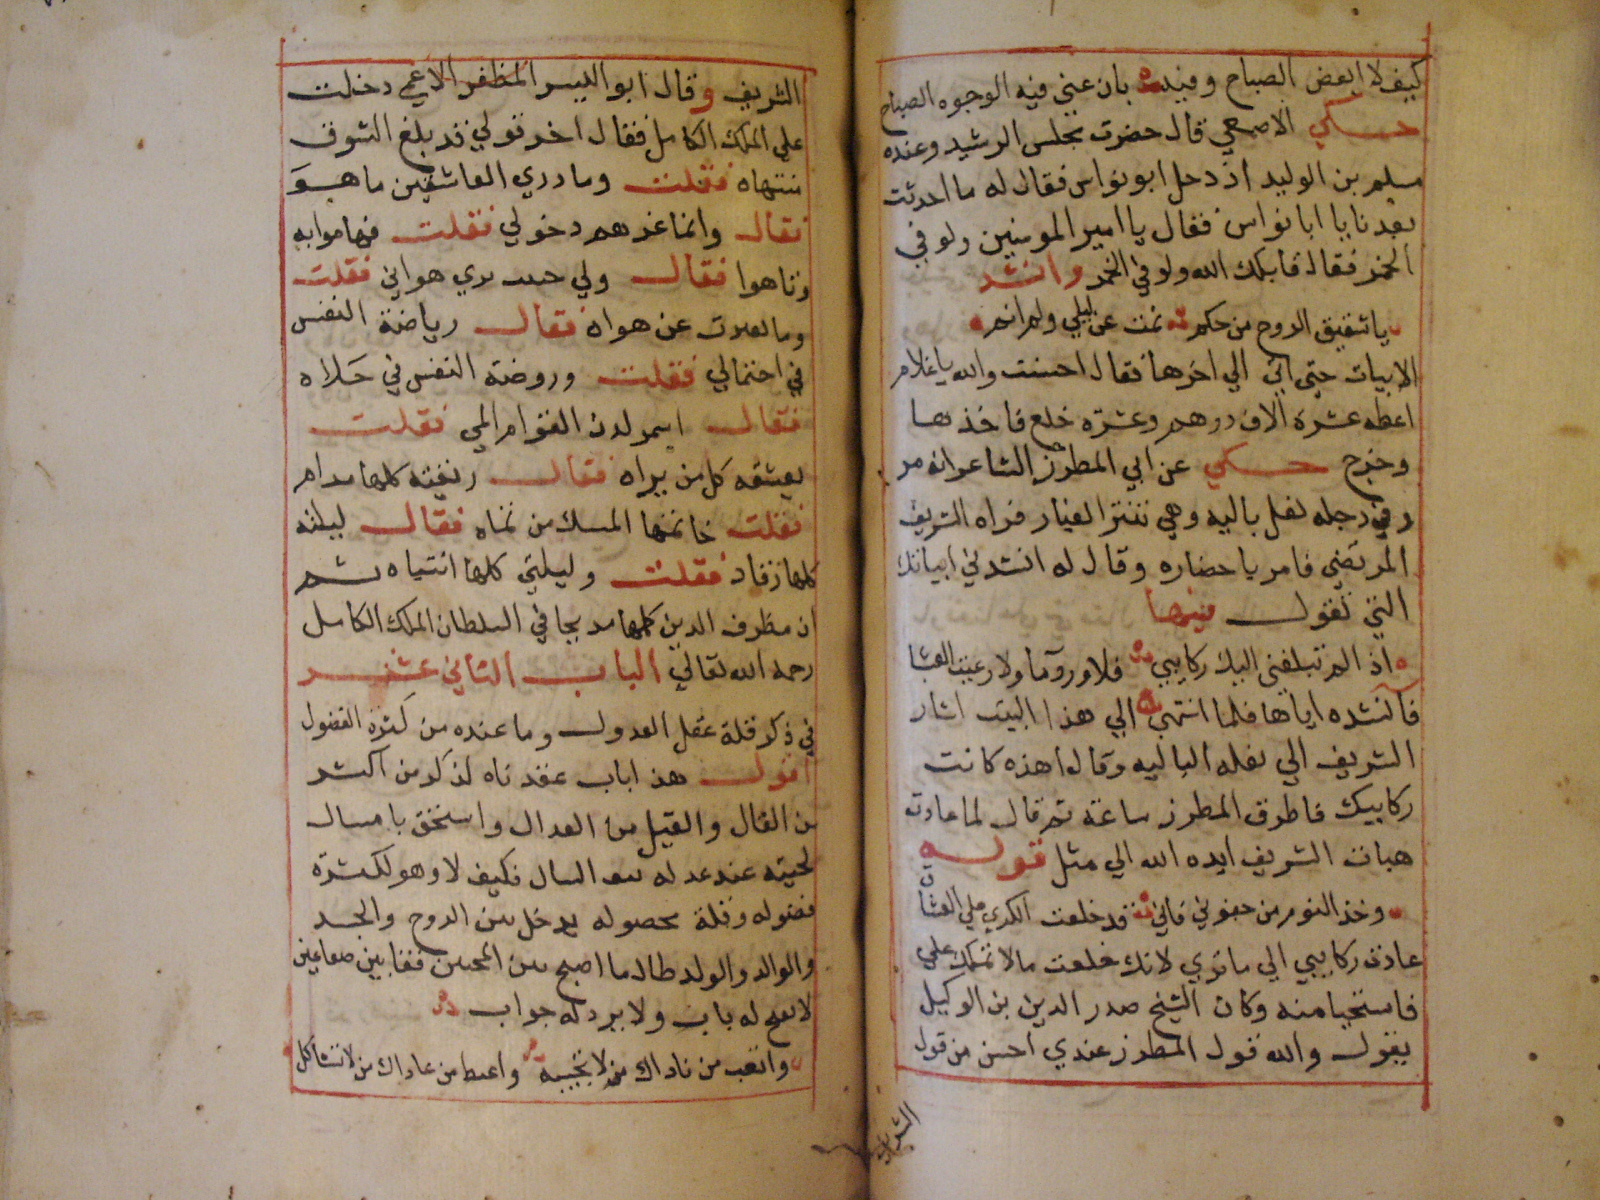 كيف لا ابغض الصباح وفيه بان عني فيه الوجوه الصباح
حكي الاصمعي قال حضرت مجلس الرشيد وعنده
مسلم بن الوليد اذ دخل ابو نواس فقال له ما احدثت
بعدنا يا ابا نواس فقال يا امير المومنين ولو في
الخمر فقال قاتلك الله ولو في الخمر وانشد
يا شقيق الروح من حكم نمت عن ليلي ولم انم
الابيات حتى اتى الي اخرها فقال احسنت والله يا غلام
اعطه عشرة الاف درهم وعشرة خلع فاخذها
وخرج حكي عن ابي المطرز الشاعر انه مر
وفي رجله نعل باليه وهي تنثر الغبار فراه الشريف
المرتضي فامر باحضاره وقال له انشدني ابياتك
التي تقول منها
اذ الم تبلغني اليك ركايبي فلا وردت ما ولا رعت العشبا
فانشده اياها فلما انتهى الي هذا البيت اشار
الشريف الي نعله الباليه وقال اهذه كانت
ركايبك فاطرق المطرز ساعة ثم قال لما عادت
هبات الشريف ايده الله الي مثل قوله
وخذ النوم من جفوني فاني قد خلعت الكري علي العشاق
عادت ركايبي الي ما تري لانك خلعت مالا تملك علي
فاستحيا منه وكان الشيخ صدر الدين بن الوكيل
يقول والله قول المطرز عندي احسن من قول
الشريف
الشريف وقال ابو اليسر المظفر الاعمي دخلت
علي الملك الكامل فقال اخر قولي قد بلغ الشوق
منتهاه فقلت وما دري العاشقين ما هو
فقال وانما غرهم دخولي فقلت فيها موا به
وتاهوا فقال ولي حبيب يري هواني فقلت
وما تغيرت عن هواه فقال رياضة النفس
في احتمالي فقلت وروضة النفس في حلاه
فقال اسمر لدن القوام المي فقلت
يعشقه كل من يراه فقال ريقته كلها مدام
فقلت خاتمها المسك من لماه فقال ليلته
كلها رقاد فقلت وليلتي كلها انتباه ثم
ان مظرف الدين كلها مديحا في السلطان الملك الكامل
رحمه الله تعالي الباب الثاني عشر
في ذكر قلة عقل العدول وما عنده من كثرة الفضول
اقول هذا باب عقدناه لذكر من اكثر
من القال والقيل من العدال واستحق
لحيته عند عدله فكيف لا وهو لكثرة
فضوله وقلة محصوله يدخل بين الروح والجسد
والوالد والولد طالما اصبح بين المحبين
له باب ولا يرد له جواب
واتعب من ناداك من لا تجيبه واغيظ من عاداك من لا تشاكل